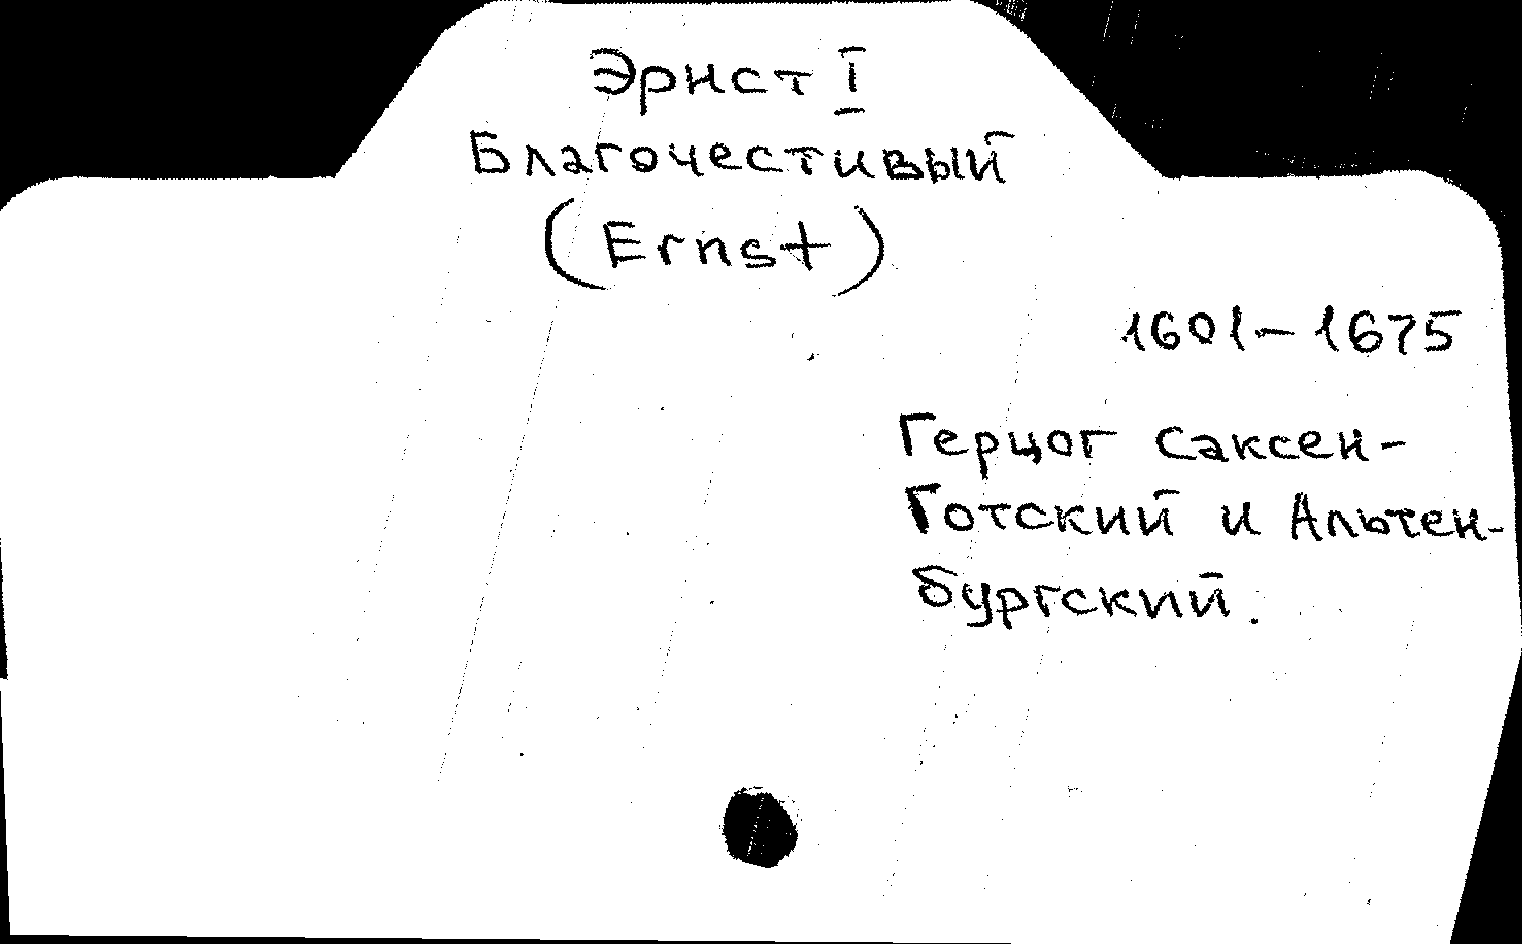 Эрнст I
Благочестивый
(Ernst)
1601-1675
Герцог Саксен-
Готский и Альтен-
бургский.